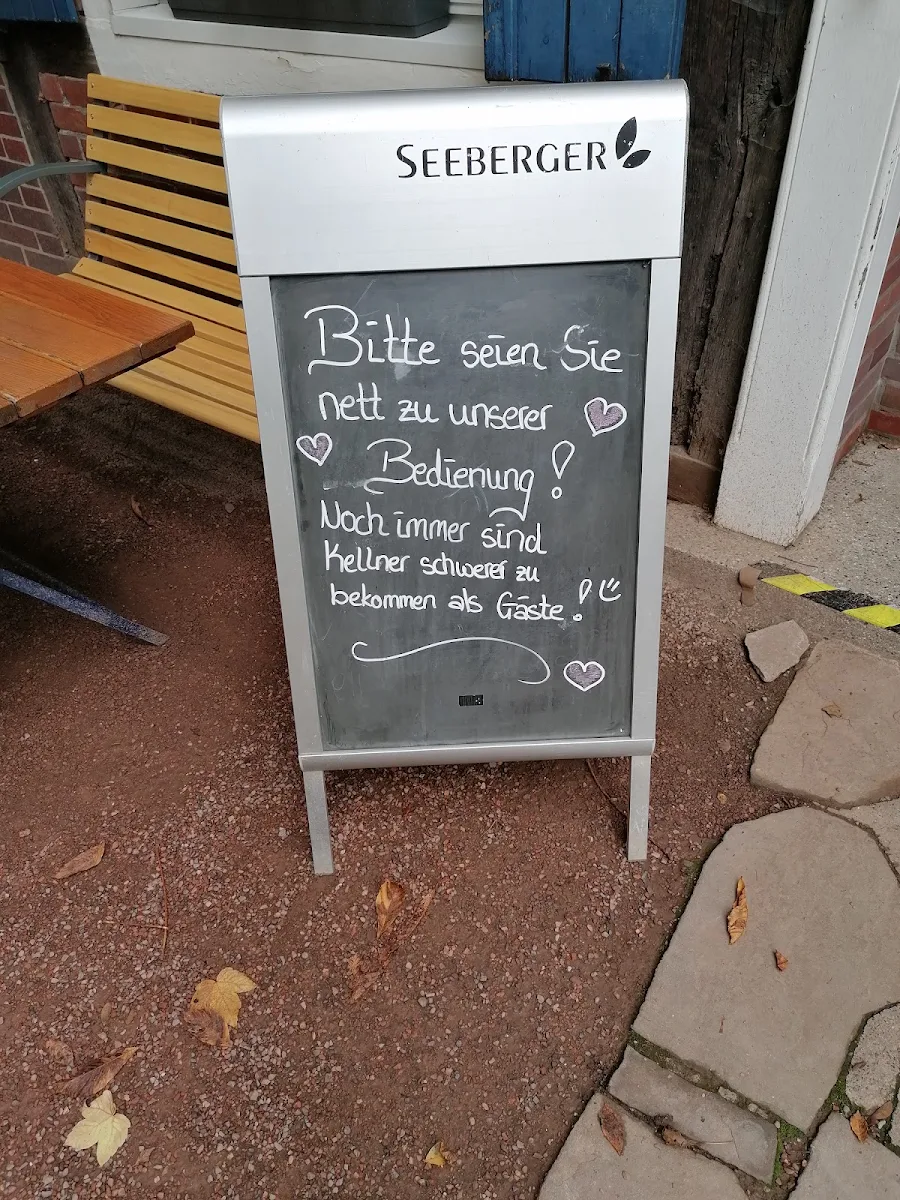 SEEBERGER
Bitte seien Sie
nett zu unserer
Bedienung!
Noch immer sind
Kellner schwerer zu
bekommen als Gäste!